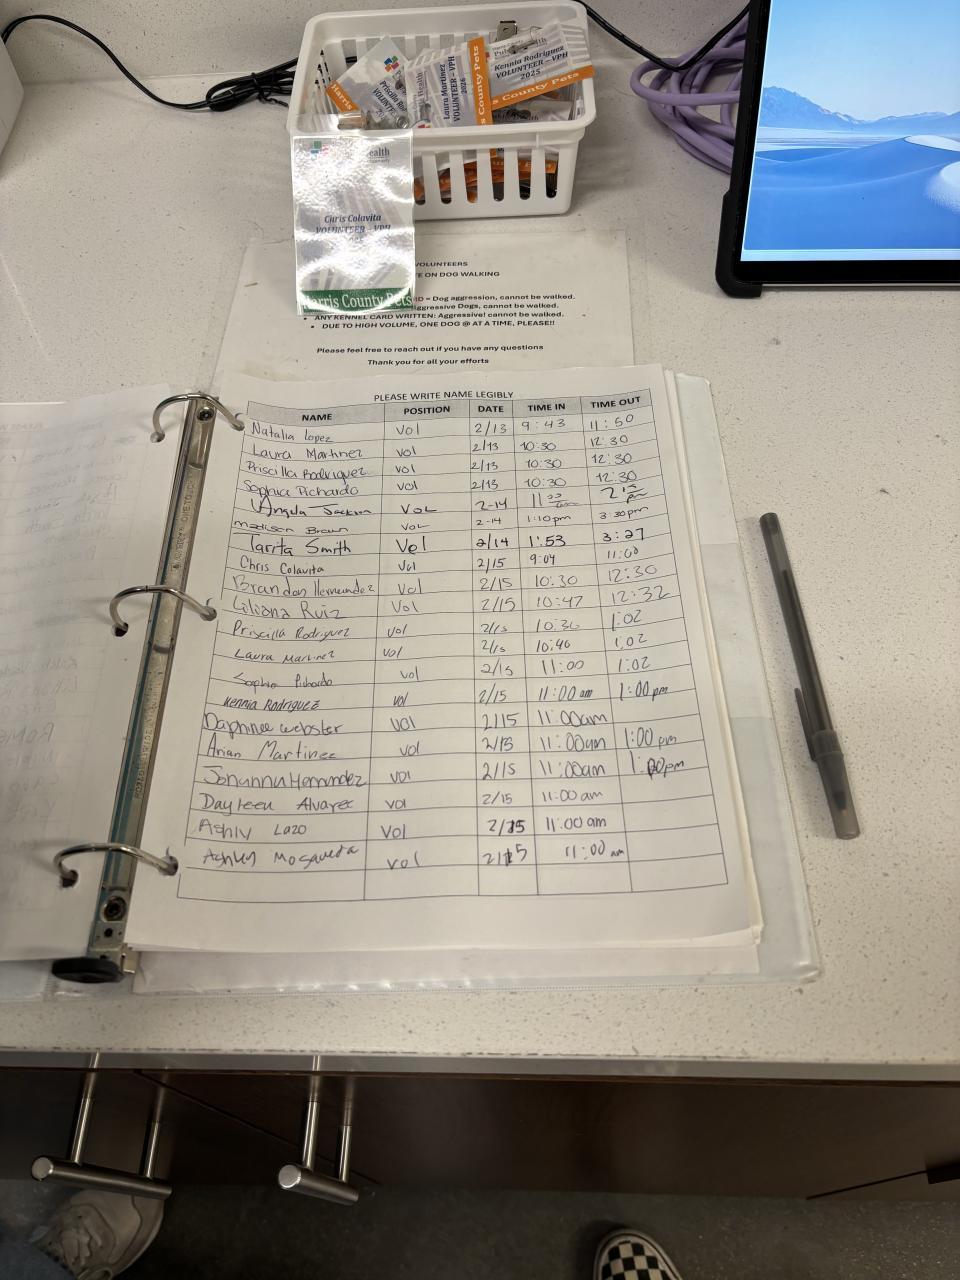 Harris
Priscilla Ro
VOLUNTEER
Health
Laura Martinez
VOLUNTEER – VPH
2026
s County Pets
Kennia Rodriguez
VOLUNTEER – VPH
2025
s County Pets
Health
Chris Colavita
VOLUNTEER – VPH
Harris County Pets
VOLUNTEERS
E ON DOG WALKING
D = Dog aggression, cannot be walked.
ggressive Dogs, cannot be walked.
• ANY KENNEL CARD WRITTEN: Aggressive! cannot be walked.
• DUE TO HIGH VOLUME, ONE DOG @ AT A TIME, PLEASE!!
Please feel free to reach out if you have any questions
Thank you for all your efforts
PLEASE WRITE NAME LEGIBLY
NAME POSITION DATE TIME IN TIME OUT
Natalia Lopez Vol 2/13 9:43 11:50
Laura Martinez vol 2/13 10:30 12:30
Priscilla Rodriguez vol 2/13 10:30 12:30
Sophia Pichardo vol 2/13 10:30 12:30
Angela Jackson Vol 2-14 11
Madison Brown Vol 2-14 1:10pm 3:30pm
Tarita Smith Vol 2/14 1:53 3:27
Chris Colavita Vol 2/15 9:04 11:00
Brandon Hernandez Vol 2/15 10:30 12:30
Liliana Ruiz Vol 2/15 10:47 12:32
Priscilla Rodriguez vol 2/15 10:36 1:02
Laura Martinez vol 2/15 10:46 1:02
Sophia Pichardo vol 2/15 11:00 1:02
Kennia Rodriguez vol 2/15 11:00 am 1:00 pm
Daphnee Webster vol 2/15 11:00am
Arian Martinez vol 2/15 11:00am 1:00 pm
Johanna Hernandez vol 2/15 11:00am 1:00pm
Dayleen Alvarez vol 2/15 11:00 am
Ashly Lazo Vol 2/15 11:00 am
Ashley Mosqueda vol 2/15 11:00 am